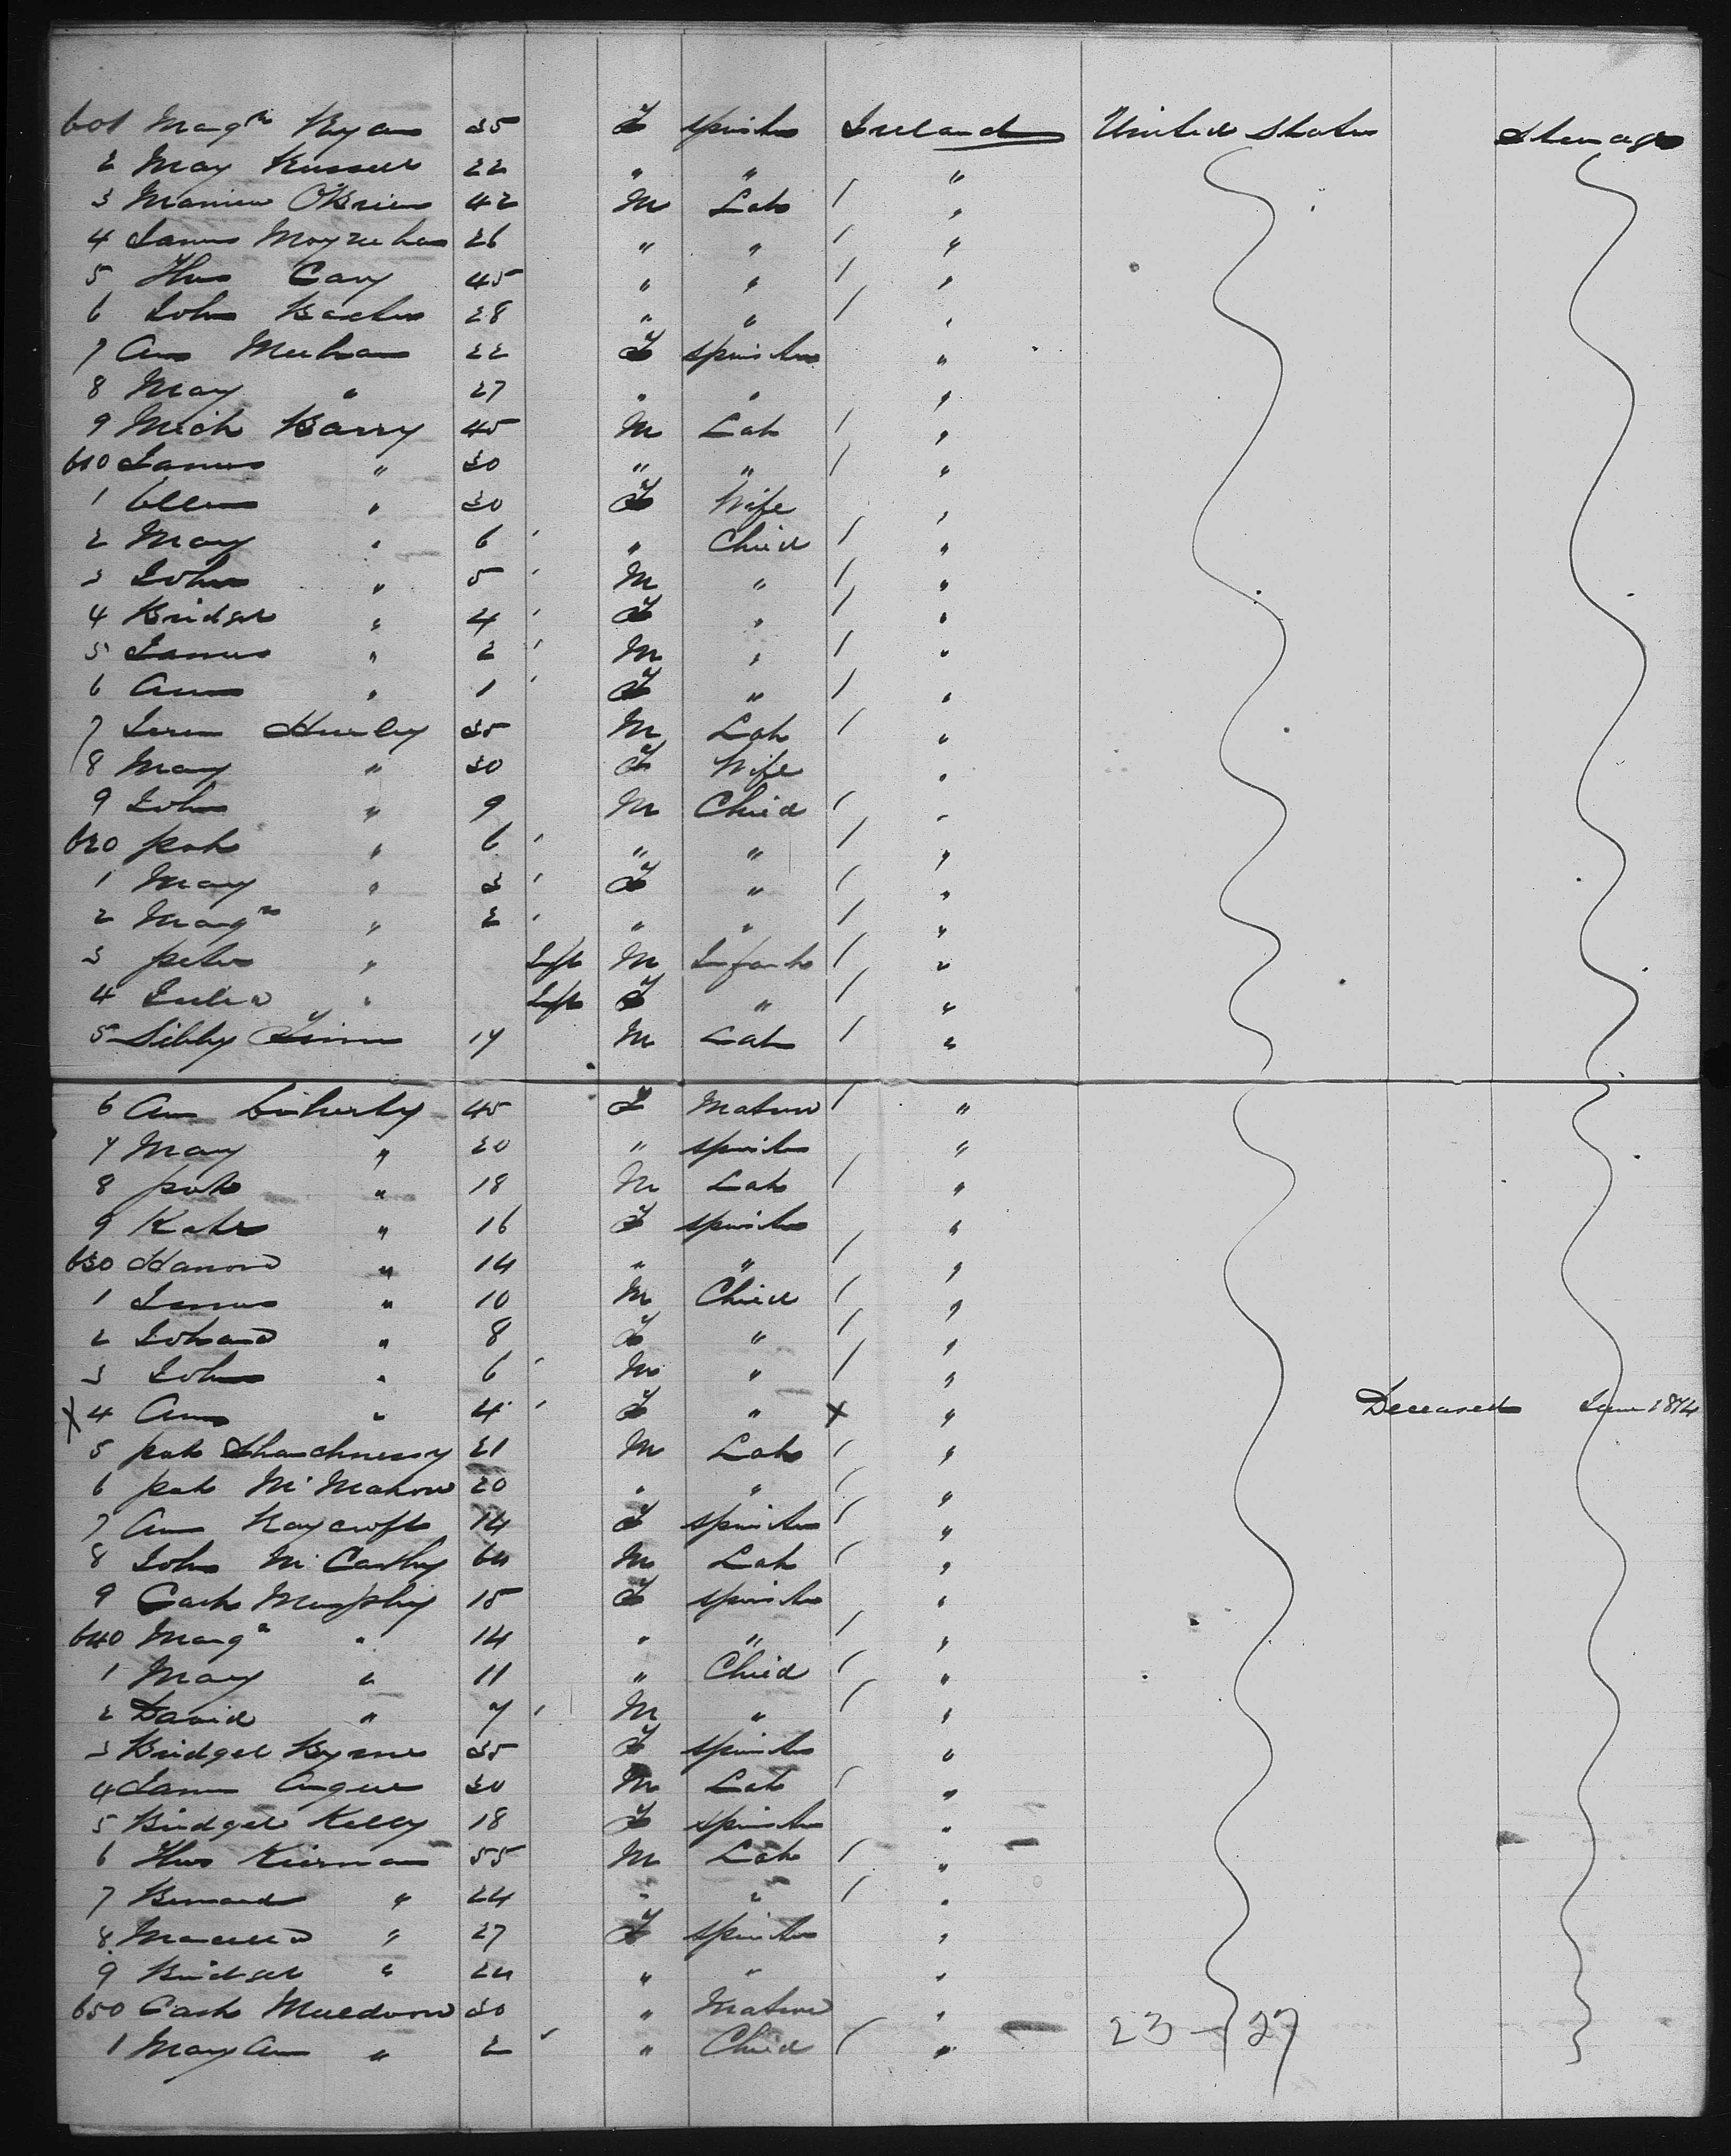 601 Margt Ryan 35 F spinster Ireland United States Steerage
2 May Russell 22 " " "
3 O'Brien 42 M Lab / "
4 James Moynehan 26 " " / "
5 Thos Cary 45 " " / "
6 John 28 " " / "
7 Ann Meehan 22 F spinster "
8 Mary " 27 " " "
9 Mich Barry 45 M Lab / "
610 James " 30 " " / "
1 Ellen " 30 F Wife "
2 Mary " 6 ' " Child / "
3 John " 5 ' M " / "
4 Bridget " 4 ' F " / "
5 James " 2 ' M " / "
6 Ann " 1 ' F " / "
7 Jerem Hurley 35 M Lab / "
8 Mary " 30 F Wife "
9 John " 9 M Child / "
620 pat " 6 ' " " / "
1 Mary " 3 ' F " / "
2 Margt " 2 ' " " / "
3 peter " Inft M Infant / "
4 Julia " Inft F " / "
5 Sibby 17 M Lab / "
6 Ann 45 F Matron / "
7 Mary " 20 " spinster "
8 pat " 18 M Lab / "
9 Kate " 16 F spinster "
630 Hanora " 14 " " / "
1 James " 10 M Child / "
2 Johana " 8 F " / "
3 John " 6 ' M " / "
X 4 Ann " 4 ' F " X " Deceased June 1874
5 pat Shauchnessy 21 M Lab / "
6 pat McMahon 20 " " / "
7 Ann Raycroft 14 F spinster / "
8 John McCarthy 64 M Lab / "
9 Cath Murphy 15 F spinster "
640 Margt " 14 " " / "
1 Mary " 11 " Child / "
2 David " 7 ' M " / "
3 Bridget Byrne 35 F spinster "
4 James 30 M Lab / "
5 Bridget Kelly 18 F spinster "
6 Thos Kiernan 55 M Lab / "
7 Bernard " 24 " " / "
8 " 27 F spinster "
9 Bridget " 24 " " "
650 Cath Muldoon 30 " Matron "
1 Mary Ann " 2 ' " Child / " 23 - 27